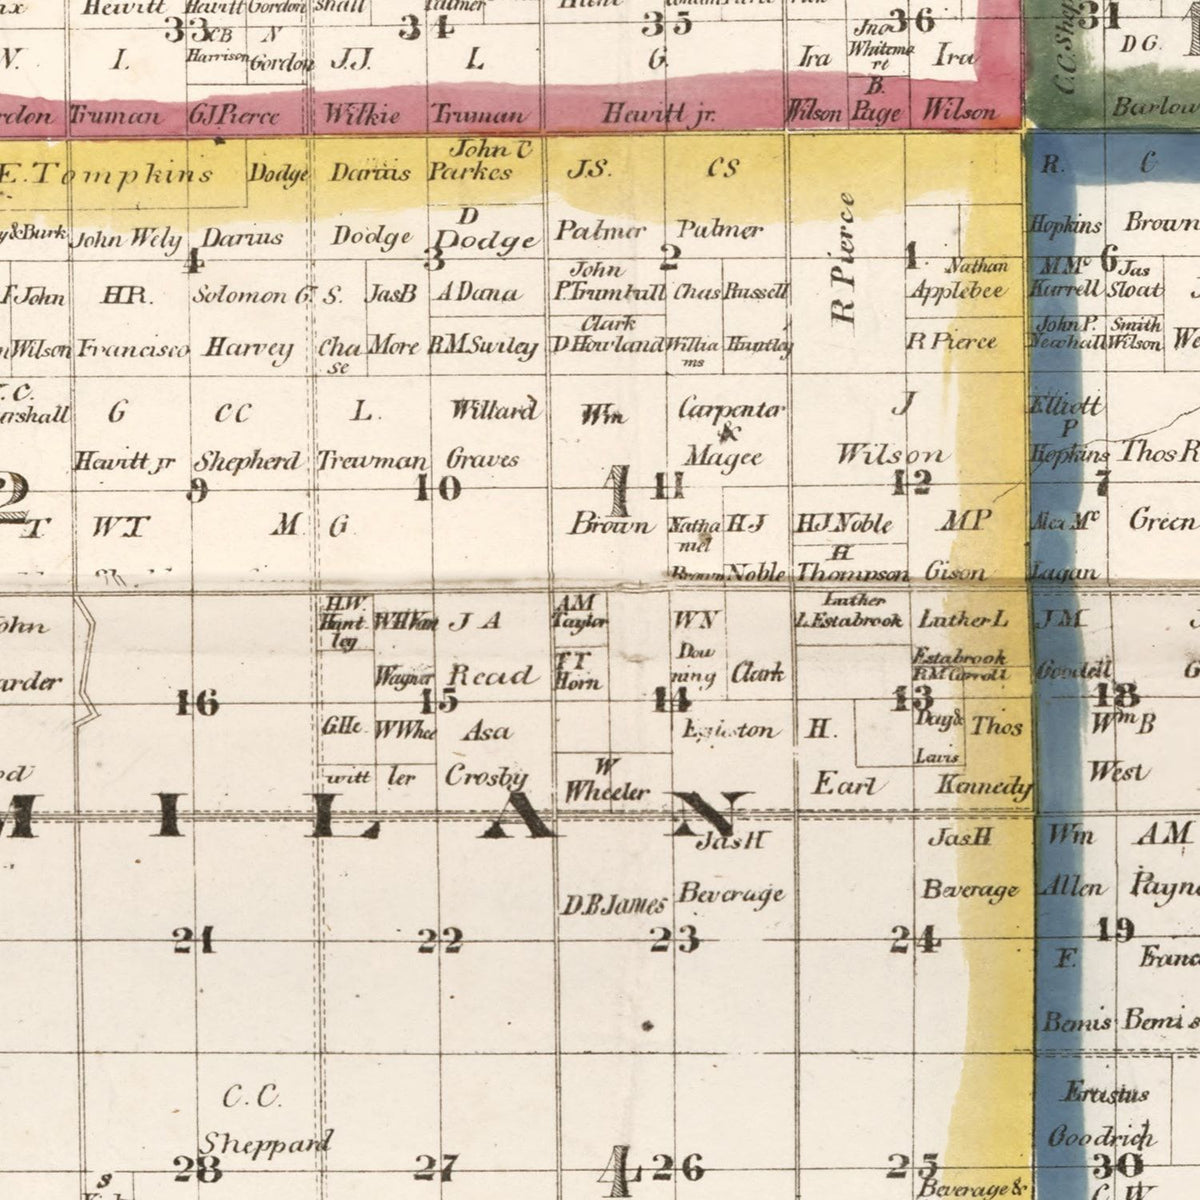 Hewitt Hewitt Gordon shall Palmer Hunt
33 34 35 36 31
CB N
Harrison Gordon
I. J.J. L G. Ira
Jno Whitemo re
Ira
D G.
B.
Truman GJ Pierce Wilkie Truman Hewitt jr. Wilson Page Wilson Barlow
E. Tompkins Dodge Darius John C Parkes J S. C S R. C
y & Burk John Wely Darius Dodge D Dodge Palmer Palmer R Pierce Hopkins Brown
4 3 2 1 6
Nathan
Applebee
M Mc Karrell Jas Sloat
F John H R. Solomon G. S. Jas B A Dana John P. Trumball Chas Russell
Wilson Francisco Harvey Cha se More R.M. Swiley Clark D Howland Willia ms Huntley R Pierce John P. Newhall Smith Wilson We
C.
arshall G C C L. Willard Wm Carpenter J Elliott
&
P
Hewitt jr Shepherd Trewman Graves Magee Wilson Hopkins Thos R
2 9 10 1 11 12 7
T W T M G Brown Natha niel Brown H J Noble H J Noble M P Alex Mc Green
H
Thompson Gison Lagan
ohn H.W. Hunt ley W H Van Wagner J A Read A M Taylor W N Dow ning Clark Luther L. Estabrook Luther L Estabrook J M Goodell
T T Horn
R M Carroll
arder 16 15 14 13 18
G He witt W Whee ler Asa Crosby W Wheeler Egliston H. Earl Day & Lewis Thos Kennedy Wm B West
M I L A N
Jas H Beverage Jas H Beverage Wm Allen A M Payne
D.B. James
21 22 23 24 19
F. Bemis Franc Bemis
C.C. Sheppard Erastus Goodrich
28 27 4 26 25 30
S Beverage & C. W